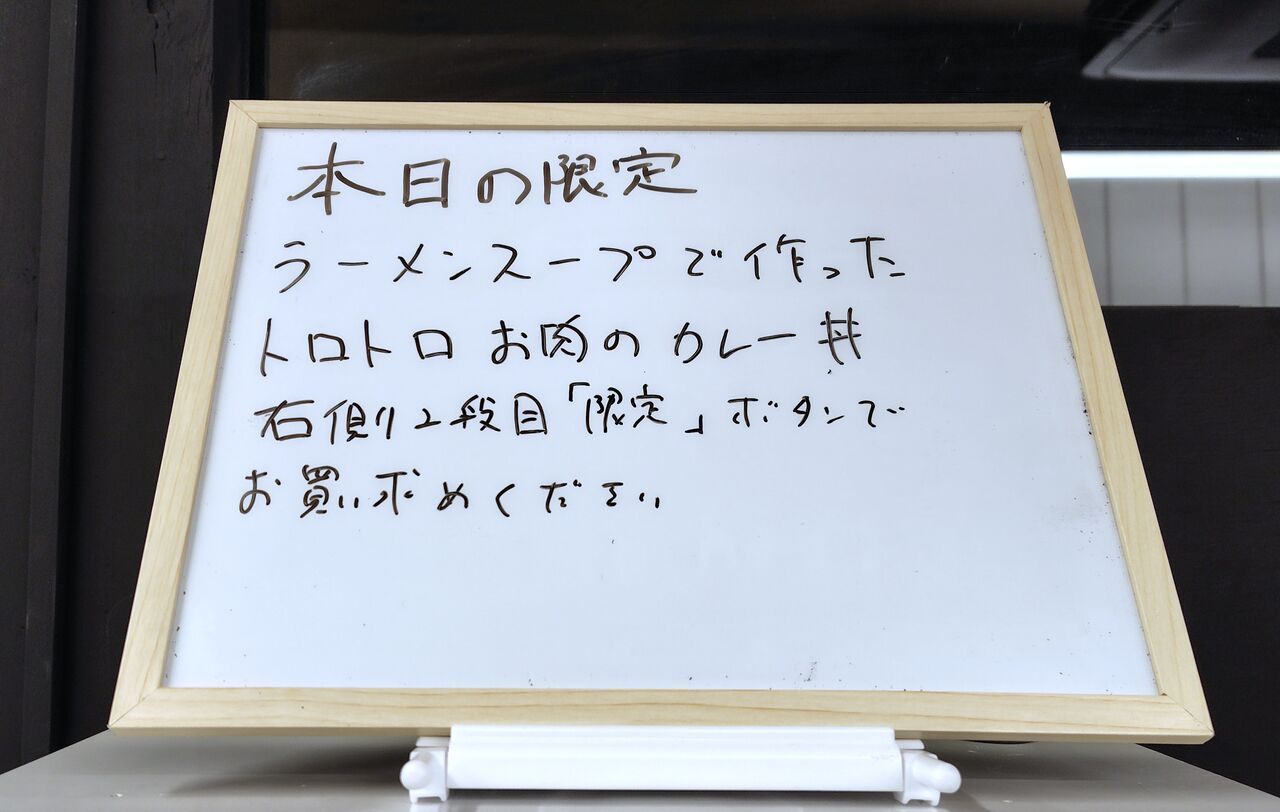 本日の限定
ラーメンスープで作った
トロトロお肉のカレー丼
右側2段目「限定」ボタンで
お買い求めください